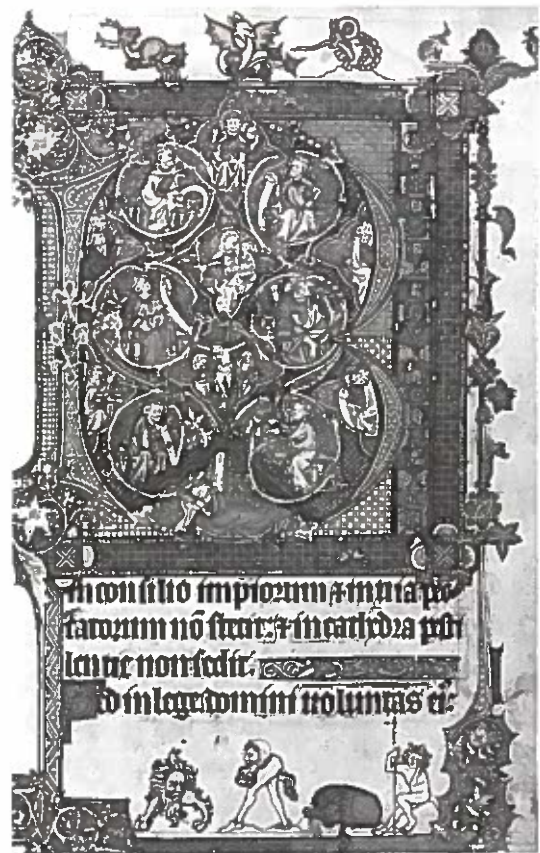 in consilio impiorum ⁊ in uia pec
catorum nō stetit: ⁊ in cathedra pesti
lentie non sedit:
Sed in lege domini uoluntas ei: